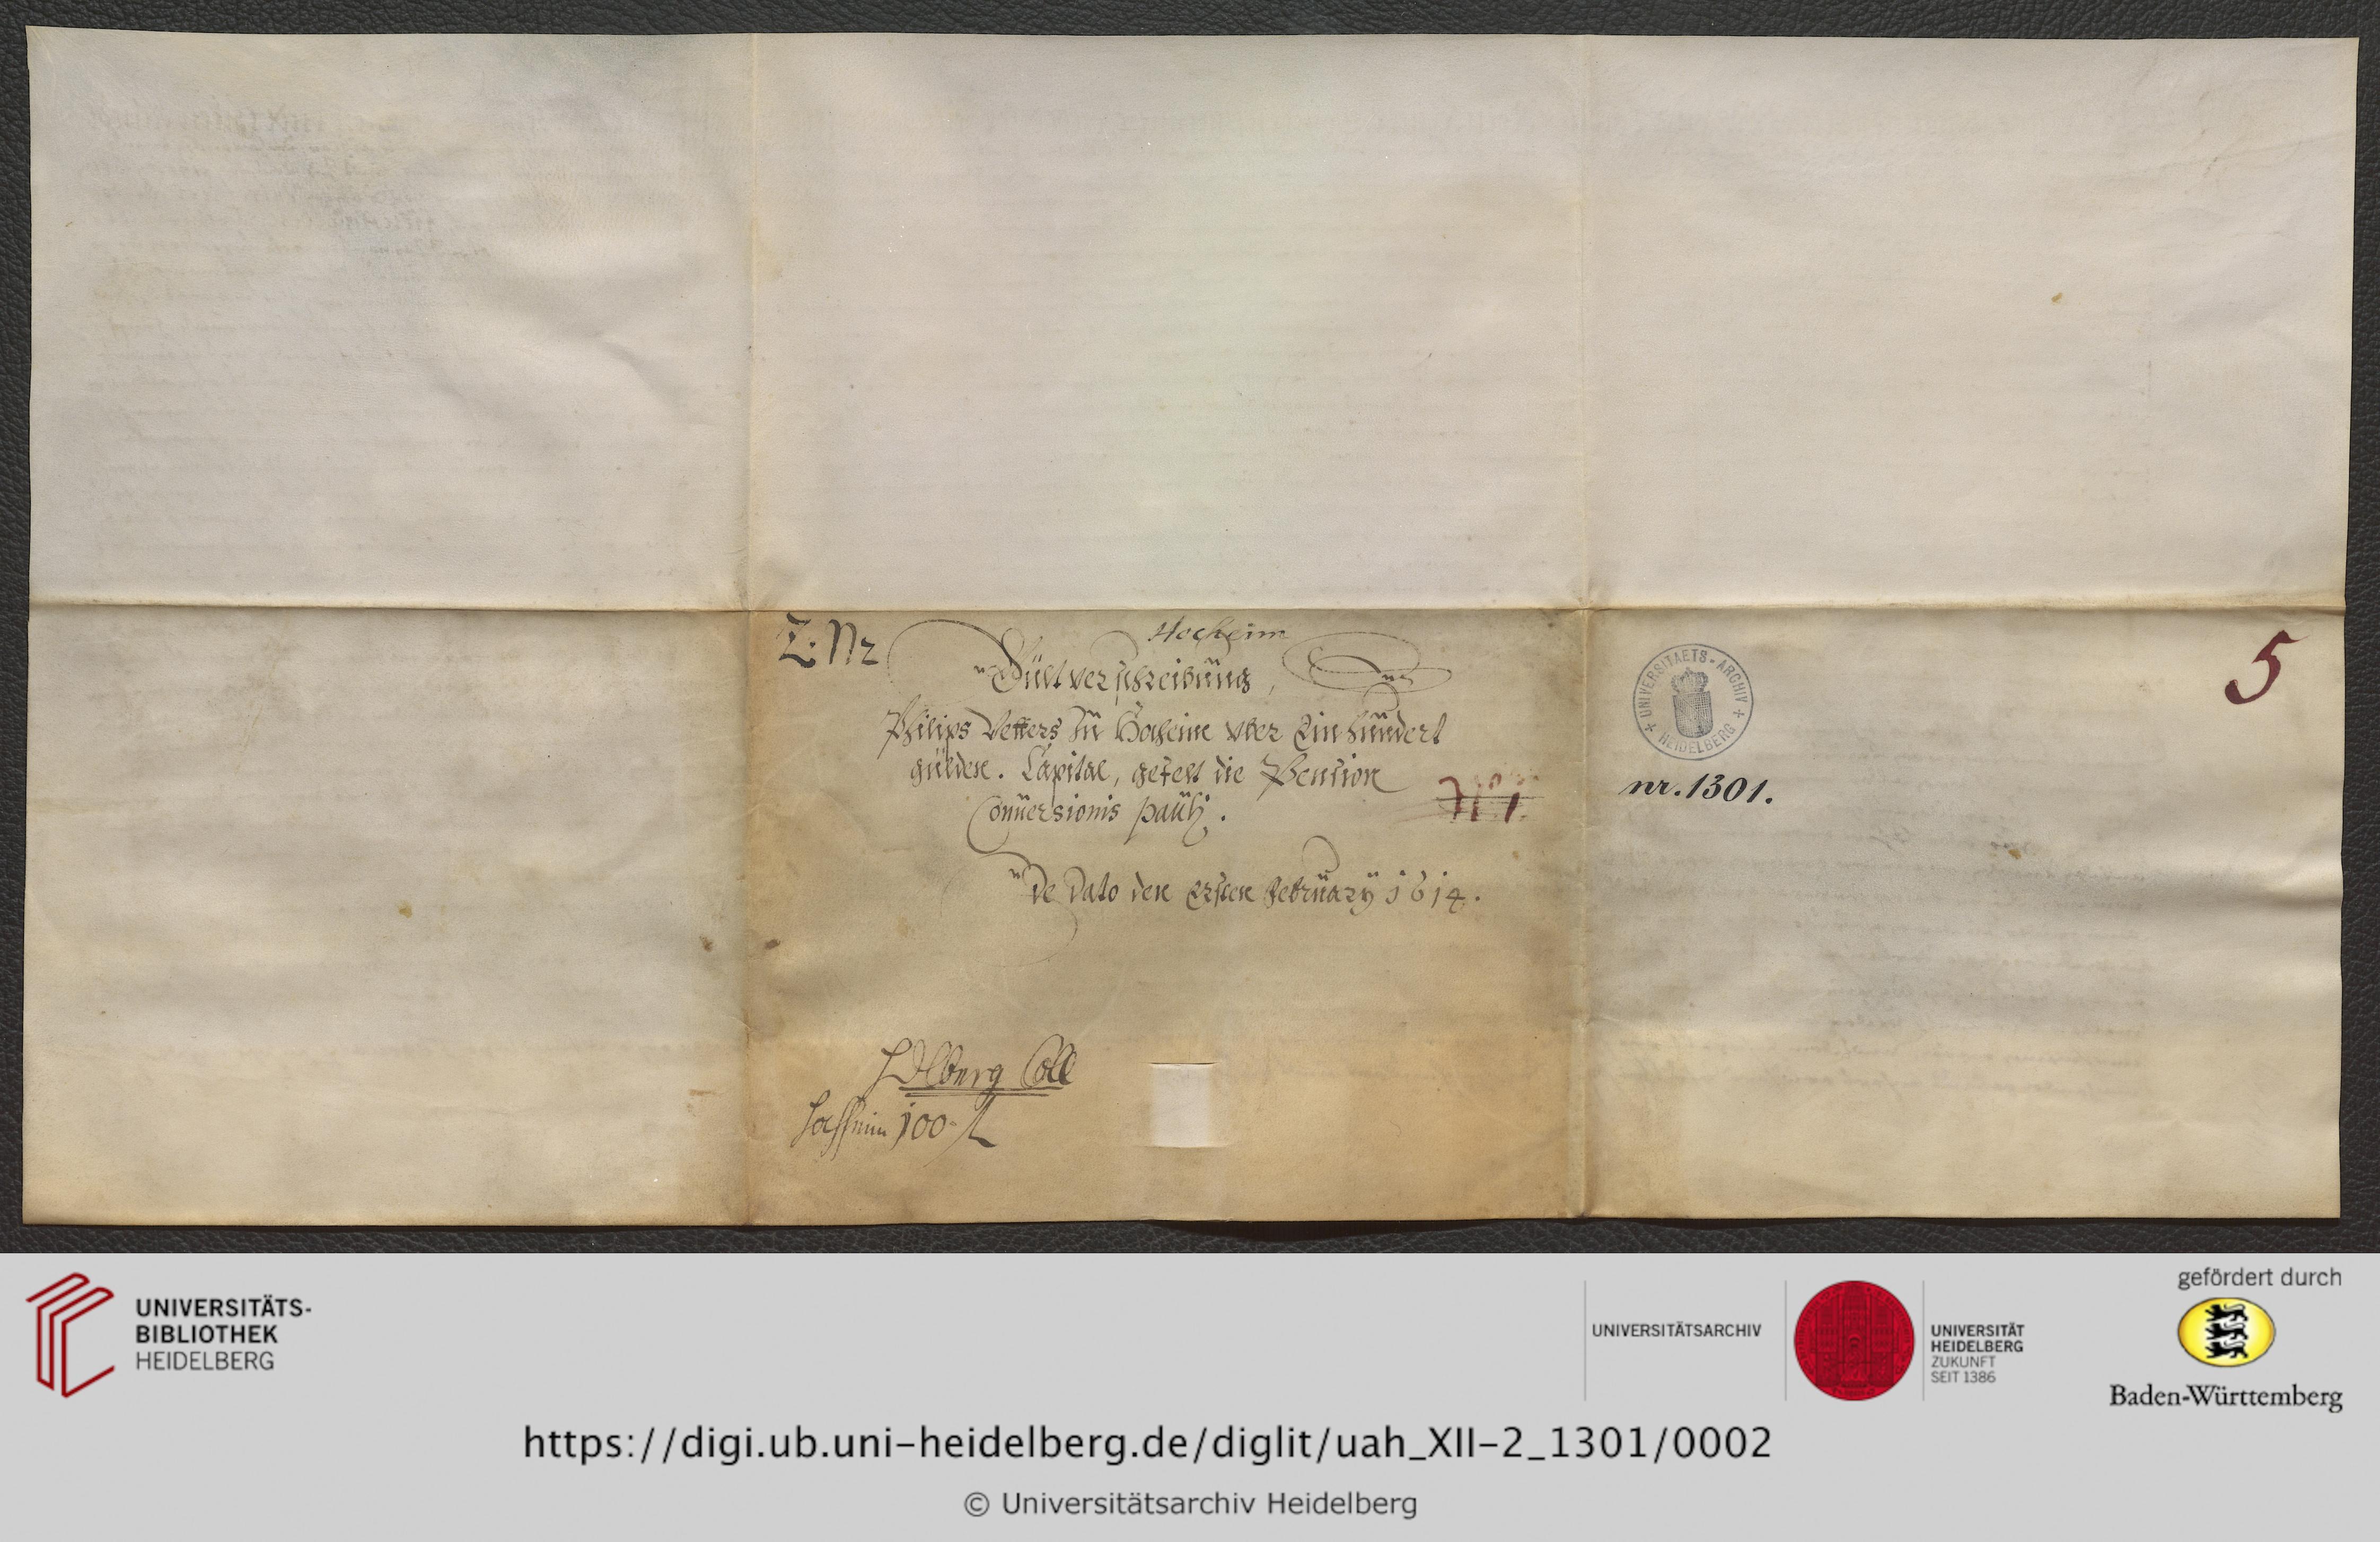 Hocheim
Z: Nr
Gültverschreibüng,
Philips Vetters Zü Hocheim vber Ein hündert
gülden. Capital, gefelt die Pension
Conüersionis paülj.
N° 1.
De Dato den Ersten Febrüarÿ 1614.
Coll
Hochheim 100 fl
UNIVERSITAETS-ARCHIV
HEIDELBERG
nr. 1301.
5
UNIVERSITÄTS-
BIBLIOTHEK
HEIDELBERG
UNIVERSITÄTSARCHIV
UNIVERSITÄT
HEIDELBERG
ZUKUNFT
SEIT 1386
gefördert durch
Baden-Württemberg
https://digi.ub.uni-heidelberg.de/diglit/uah_XII-2_1301/0002
© Universitätsarchiv Heidelberg